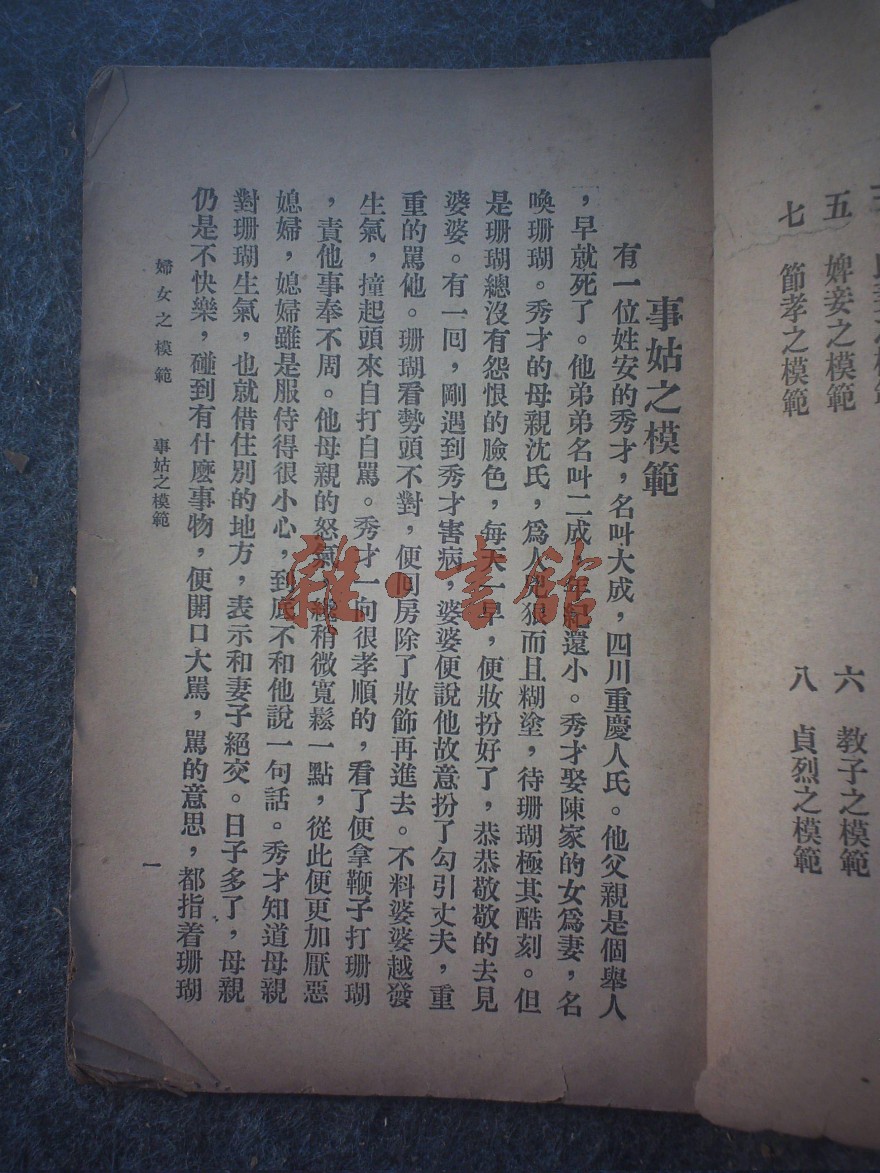 五 婢妾之模範 六 教子之模範
七 節孝之模範 八 貞烈之模範
事姑之模範
有一位姓安的秀才，名叫大成，四川重慶人氏。他父親是個舉人
，早就死了。他弟弟名叫二成，年紀還小。秀才娶陳家的女爲妻，名
喚珊瑚。秀才的母親沈氏，爲人兇狠而且糊塗，待珊瑚極其酷刻。但
是珊瑚總沒有怨恨的臉色，每天一早，便妝扮好了，恭恭敬敬的去見
婆婆。有一回，剛遇到秀才害病，婆婆便說他故意扮了勾引丈夫，重
重的罵他。珊瑚看勢頭不對，便回房除了妝飾再進去。不料婆婆越發
生氣，撞起頭來自打自罵。秀才一向很孝順的，看了便拿鞭子打珊瑚
，責他事奉不周。他母親的怒氣，纔稍微寬鬆一點，從此便更加厭惡
媳婦，媳婦雖是服侍得很小心，到底不和他說一句話。秀才知道母親
對珊瑚生氣，也就借住別的地方，表示和妻子絕交。日子多了，母親
仍是不快樂，碰到有什麽事物，便開口大罵，罵的意思，都指着珊瑚
婦女之模範 事姑之模範 一
雜·書館